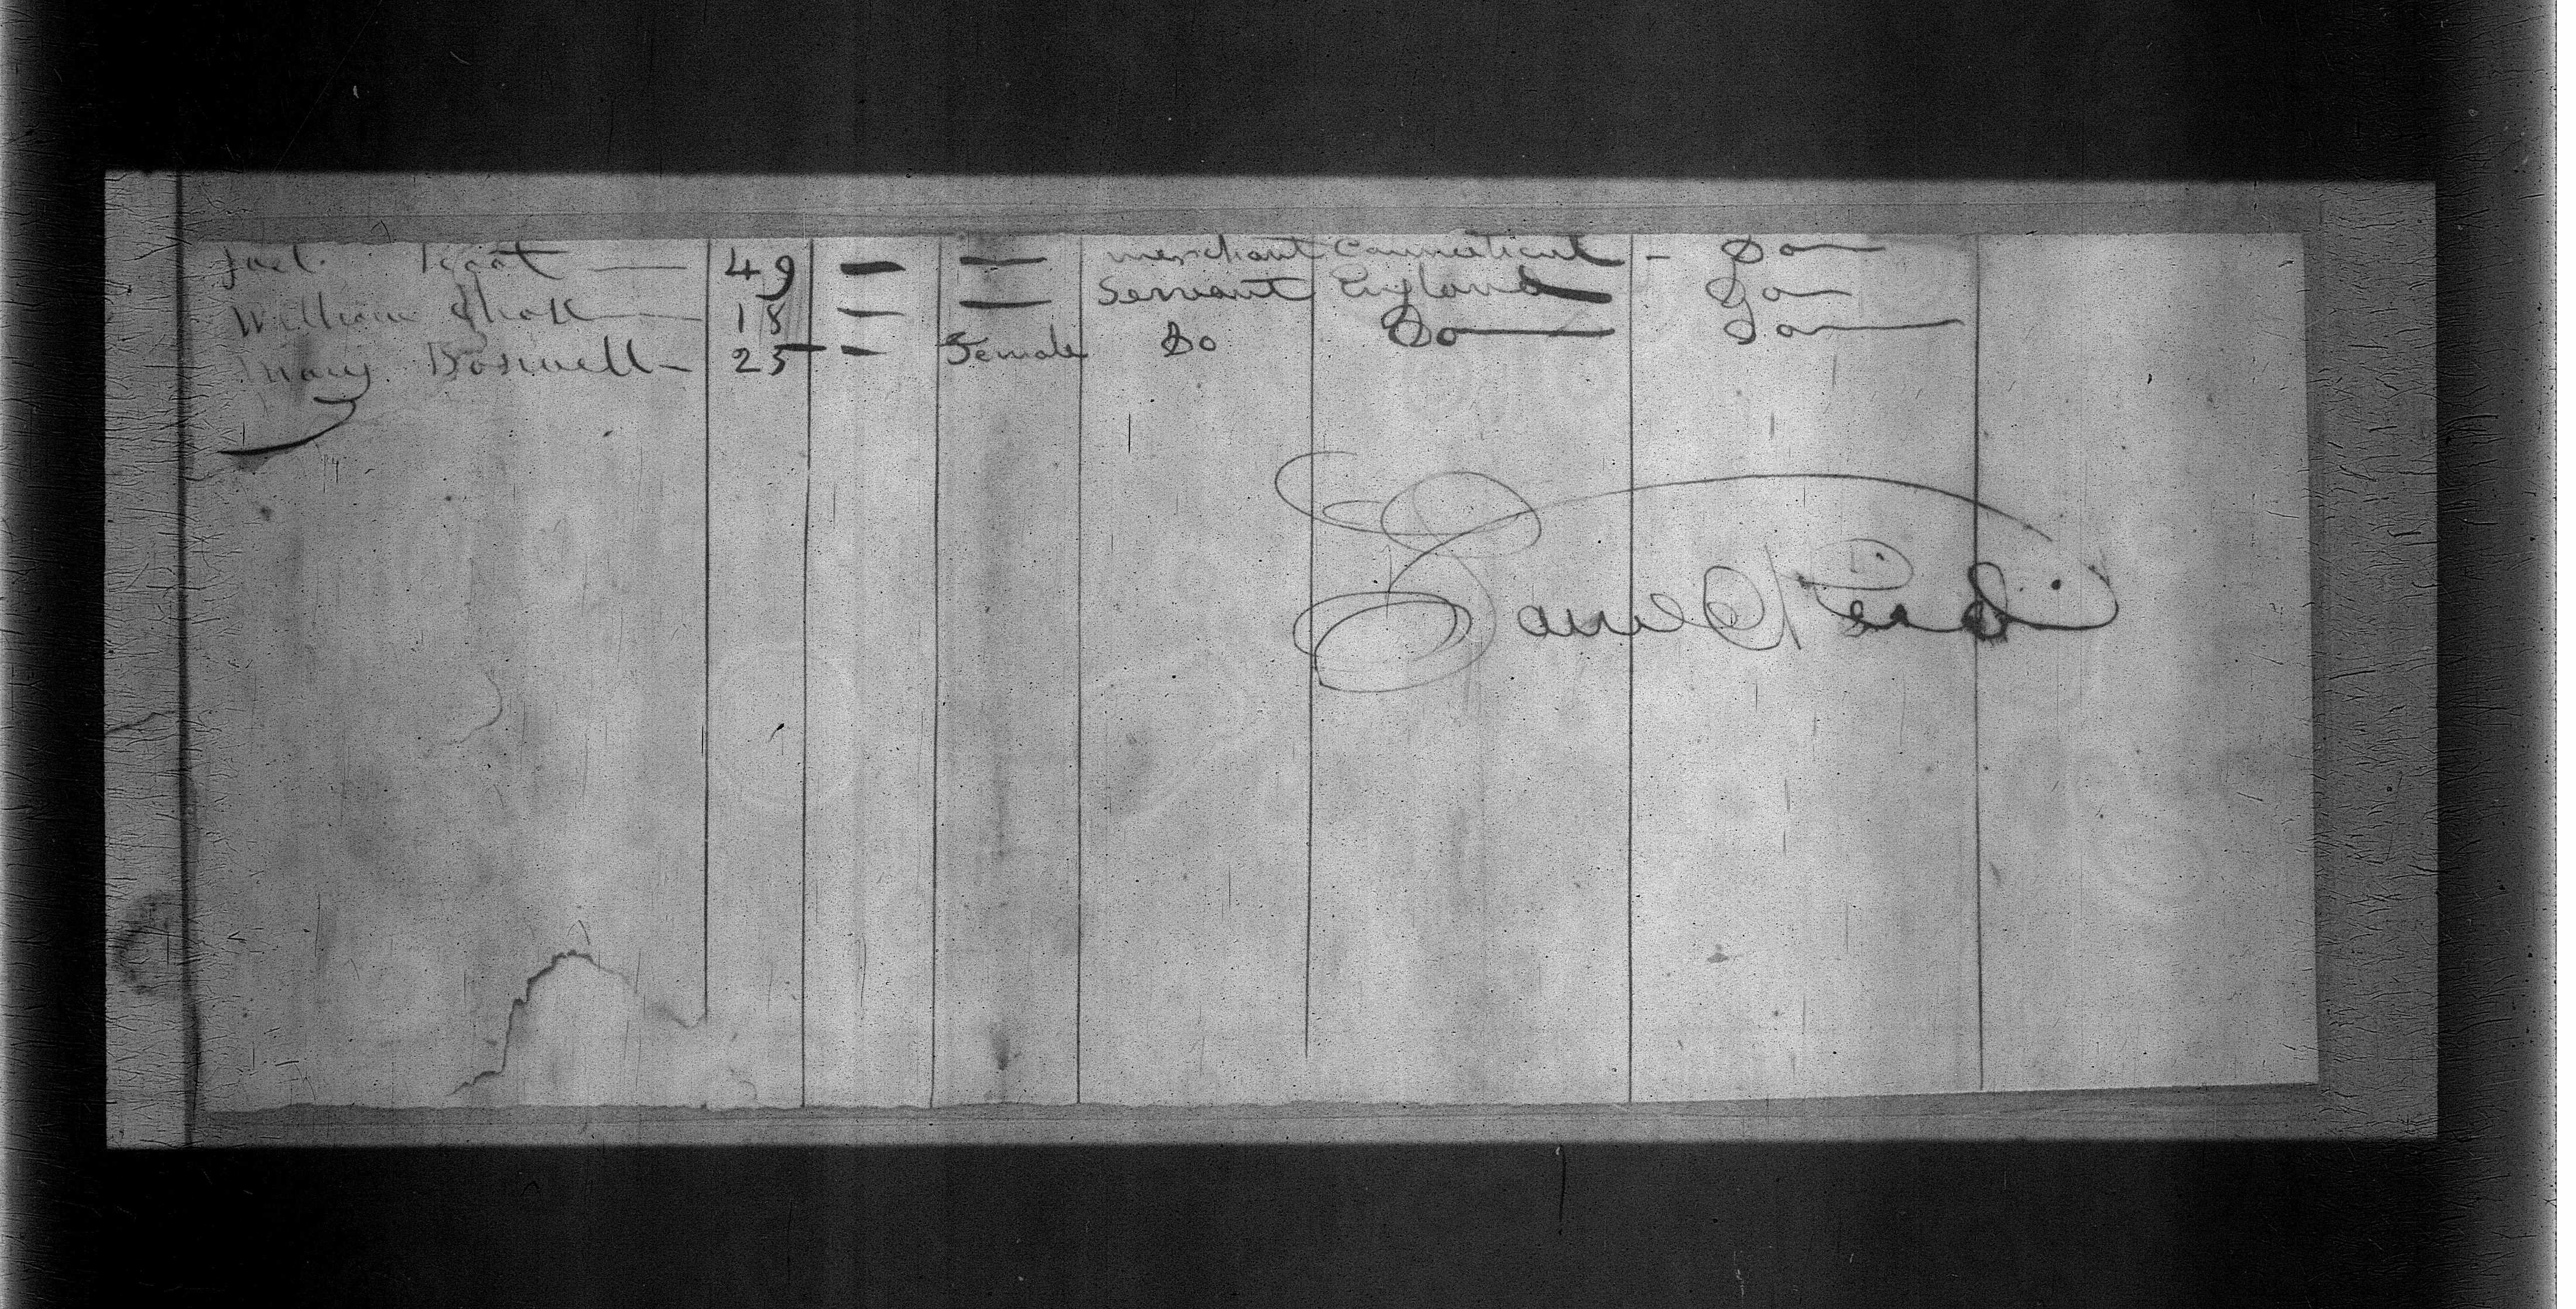 Joel Root — 49 — — merchant Connecticut - Do —
William Short — 18 — — Servant England — Do —
Mary Boswell — 25 — Female Do Do — Do —